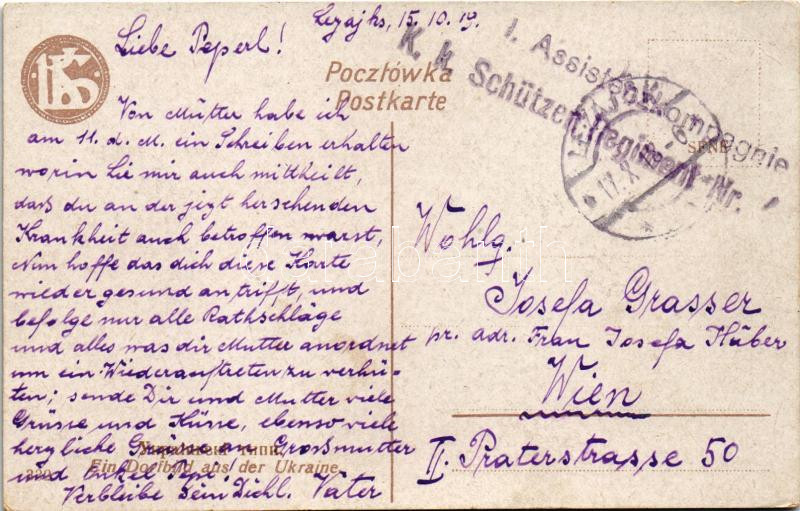 Lezajks, 15.10.19.
Liebe Peperl!
Pocztówka
Postkarte
I. Assistenzkompagnie
K. k. Schützen-Regiment Nr.
17.X
Von Mutter habe ich
am 11. d. M. ein Schreiben erhalten
worin Sie mir auch mittheilt,
daß du an der jezt herschenden
Krankheit auch betroffen warst,
Nun hoffe das dich diese Karte
wieder gesund antrifft, und
befolge nur alle Rathschläge
und alles was dir Mutter anordnet
um ein Wiederauftreten zu verhü-
ten; sende Dir und Mutter viele
Grüsse und Küsse, ebenso viele
herzliche Grüsse an Grossmutter
und Onkel Pepi.
Verbleibe Dein Dichl. Vater
Ein Dorfbild aus der Ukraine
Wohlg.
Josefa Grasser
pr. adr. Frau Josefa Huber
Wien
II. Praterstrasse 50